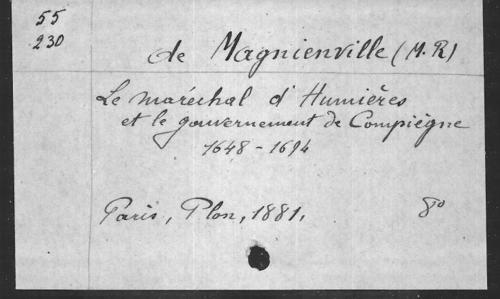 55
230
de Magnienville (M. R)
Le maréchal d'Humières
et le gouvernement de Compiègne
1648-1694
Paris, Plon, 1881, 8º